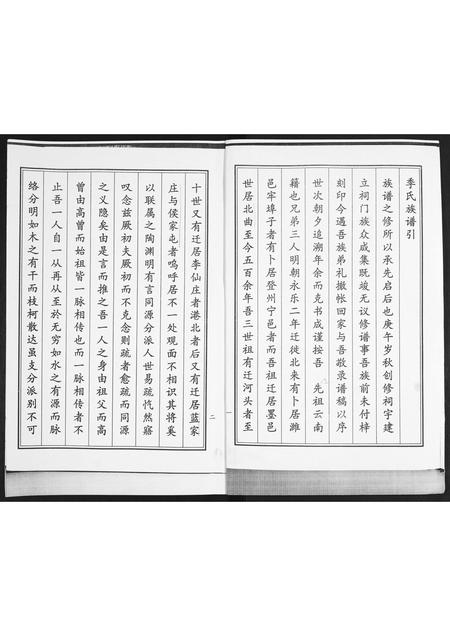 季氏族谱引
族谱之修所以承先启后也庚午岁秋创修祠宇建
立祠门族众咸集既竣无议修谱事吾族前未付梓
刻印今遇吾族弟礼撤帐回家与吾敬录谱稿以序
世次朝夕追溯年余而克书成谨按吾 先祖云南
籍也兄弟三人明朝永乐二年迁徙北来有卜居潍
邑牢埠子者有卜居登州宁邑者而吾祖迁居墨邑
世居北曲至今五百余年吾三世祖有迁河头者至
一
十世又有迁居李仙庄者港北者后又有迁居蓝家
庄与侯家屯者呜呼居不一处观面不相识其将奚
以联属之陶渊明有言同源分派人世易疏忾然寤
叹念兹厥初夫厥初而不克念则疏者愈疏而同源
之义隐矣由是言而推之吾一人之身由祖父而高
曾由高曾而始祖皆一脉相传也而一脉相传者不
止吾一人自一从再从至於无穷如水之有源而脉
络分明如木之有干而枝柯散达虽支分派别不可
二